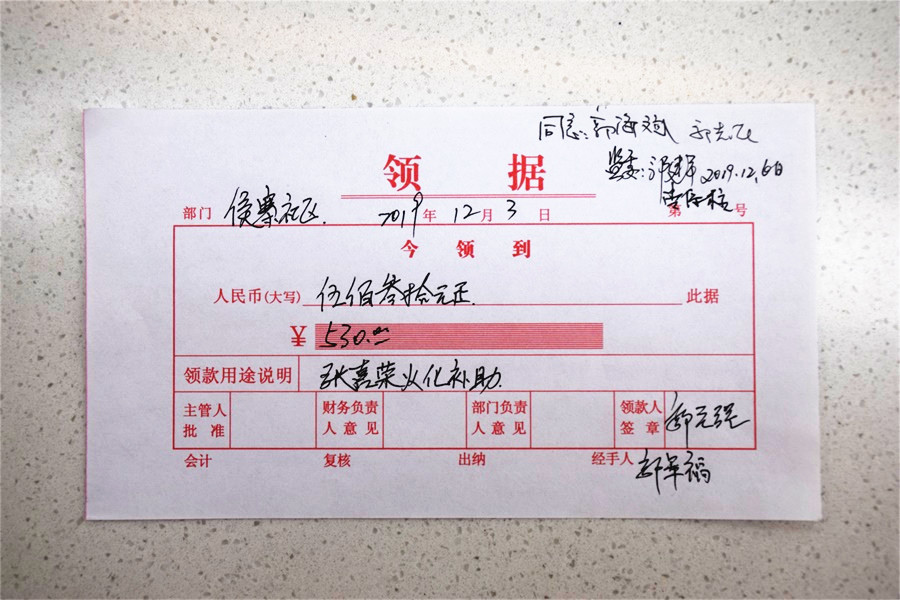 同意:郭海斌 郭志飞
领 据
监委: 2019.12.6日
部门 侯寨社区. 2019年 12月 3日 第 号
今 领 到
人民币(大写) 伍佰叁拾元正. 此据
¥ 530.00
领款用途说明 张嘉荣火化补助.
主管人批准 财务负责人意见 部门负责人意见 领款人签章 郭元强
会计 复核 出纳 经手人